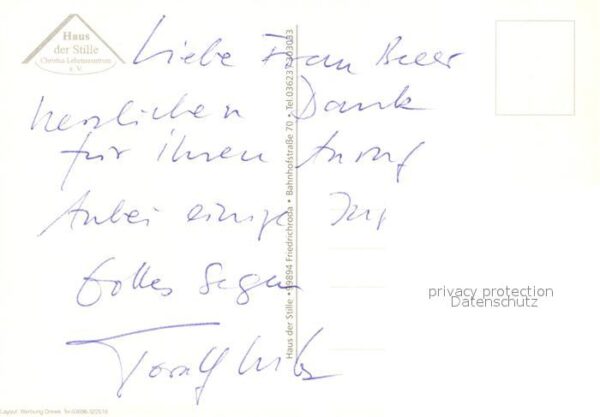 Haus
der Stille
Christus-Lebenszentrum
e. V.
Liebe Frau Beer
herzlichen Dank
für Ihren Anruf
Anbei einige
Gottes Segen
Haus der Stille • 99894 Friedrichroda • Bahnhofstraße 70 • Tel. 03623/303033
privacy protection
Datenschutz